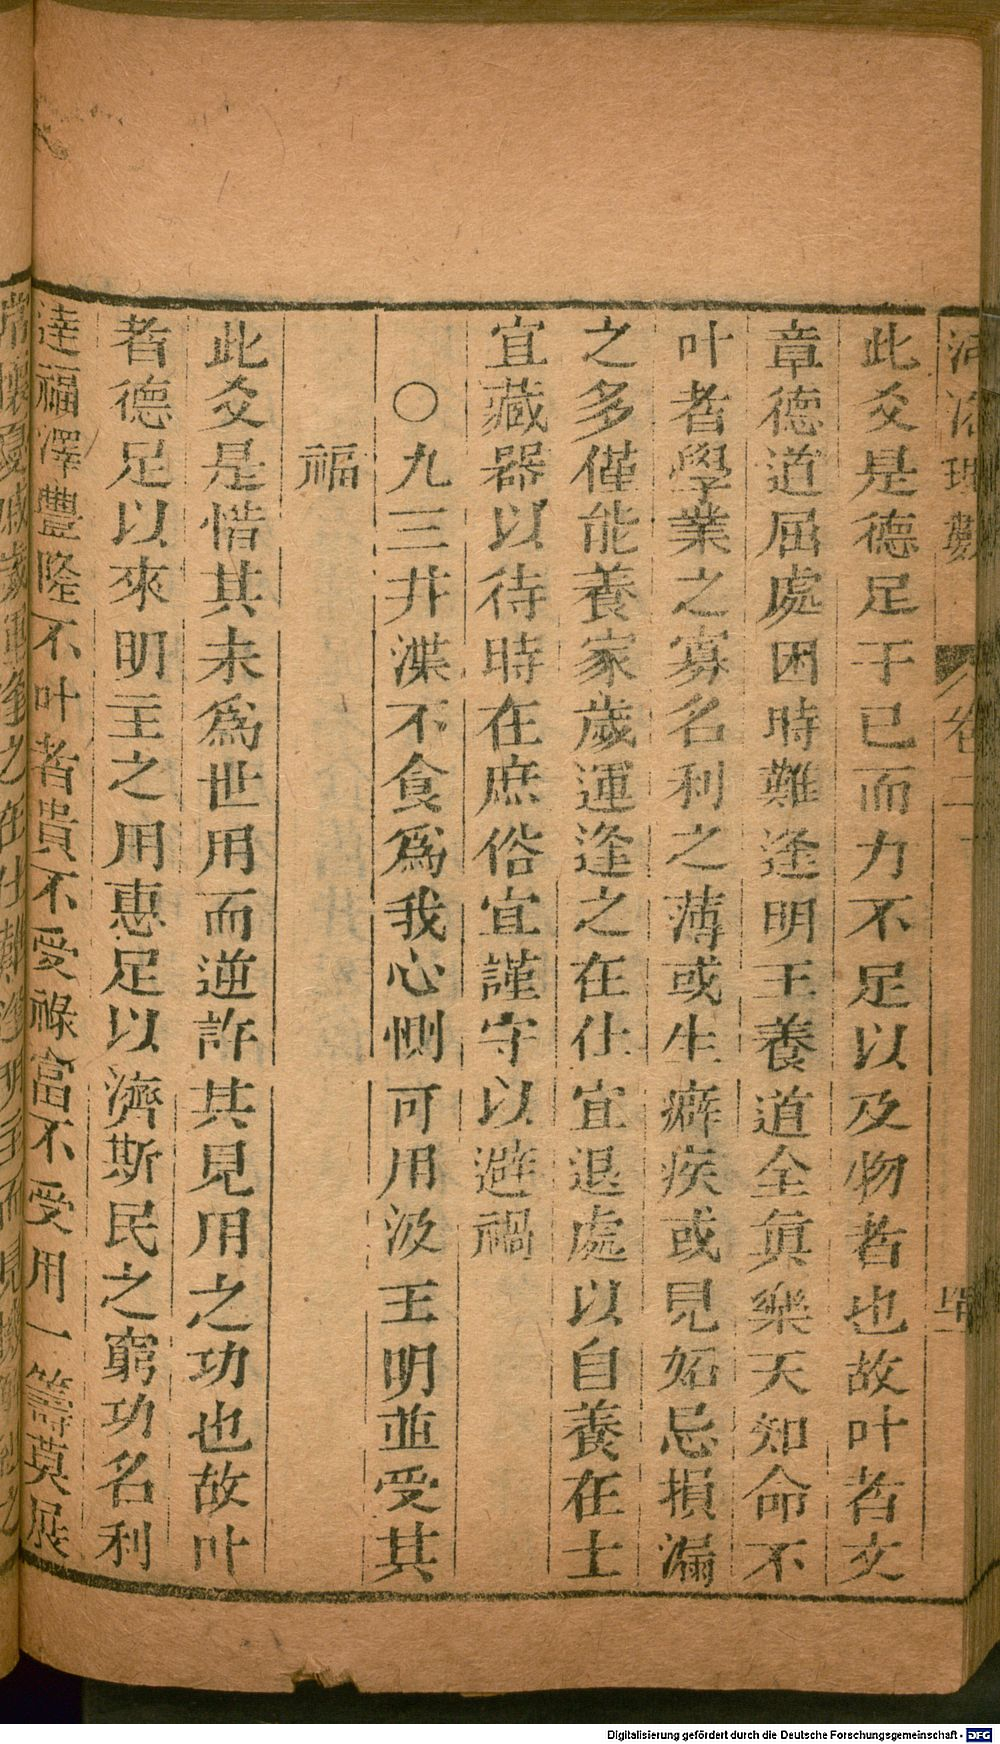 河洛理數 卷二
此爻是德足于已而力不足以及物者也故叶者文
章德道屈處困時難逢明王養道全眞樂天知命不
叶者學業之寡名利之薄或生癖疾或見妬忌損漏
之多僅能養家歲運逢之在仕宜退處以自養在士
宜藏器以待時在庶俗宜謹守以避禍
○九三井渫不食爲我心惻可用汲王明並受其
福
此爻是惜其未爲世用而逆許其見用之功也故叶
者德足以來明主之用惠足以濟斯民之窮功名利
達福澤豐隆不叶者貴不受祿富不受用一籌莫展
Digitalisierung gefördert durch die Deutsche Forschungsgemeinschaft - DFG